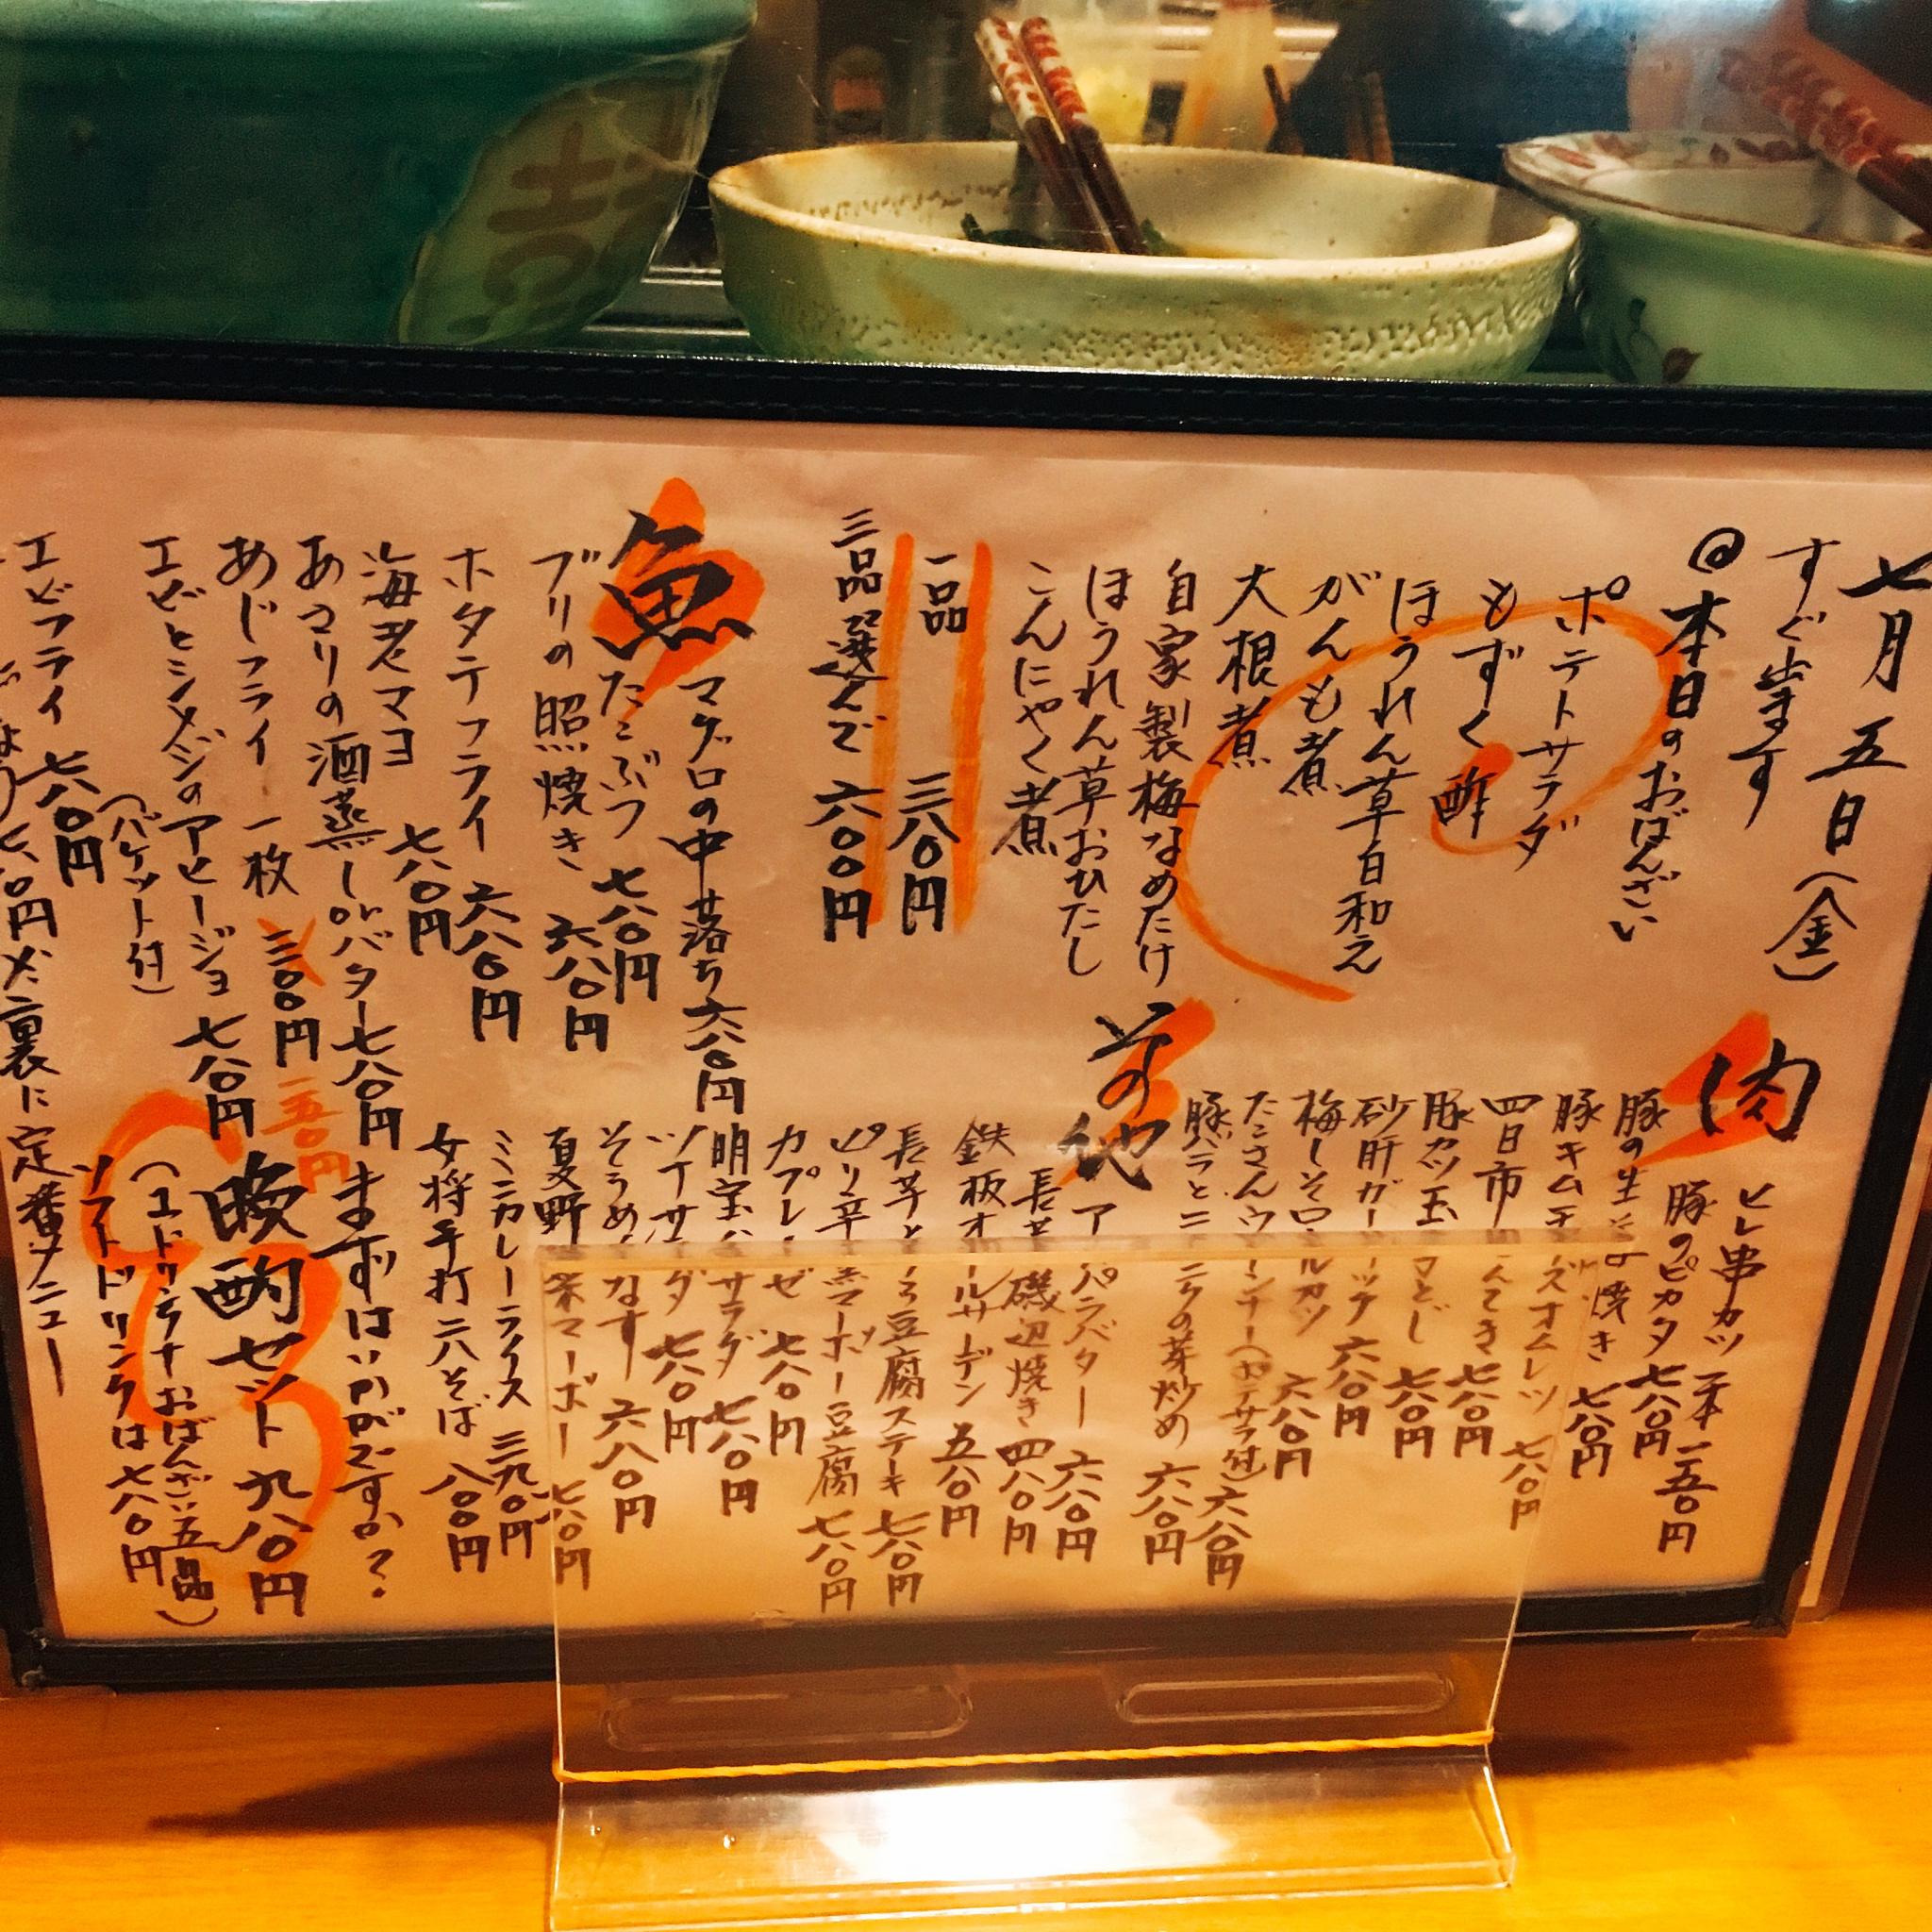 七月五日(金)
すぐ出ます
@本日のおばんざい
ポテトサラダ
もずく酢
ほうれん草白和え
がんも煮
大根煮
自家製梅なめたけ
ほうれん草おひたし
こんにゃく煮
一品 三八〇円
三品選んで 六〇〇円
魚
マグロの中落ち 六八〇円
たこぶつ 七八〇円
ブリの照焼き 六八〇円
ホタテフライ 六八〇円
海老マヨ 七八〇円
あさりの酒蒸しorバター 七八〇円
あじフライ 一枚 三〇〇円 一五〇円
エビとシメジのアヒージョ 七八〇円
(バケット付)
エビフライ 七八〇円
肉
ヒレ串カツ 一本 一五〇円
豚のピカタ 七八〇円
豚の生 焼き 七八〇円
豚キムチ ズオムレツ 七八〇円
四日市 んてき 七八〇円
豚カツ玉 とじ 七八〇円
砂肝ガーリック 六八〇円
梅しそロールカツ 六八〇円
たこさんウィンナー(ポテサラ付) 六八〇円
豚バラとニラの芽炒め 六八〇円
その他
ア パラバター 六八〇円
長芋 磯辺焼き 四八〇円
鉄板オイルサーデン 五八〇円
長芋と 豆腐ステーキ 七八〇円
ピリ辛 マーボー豆腐 七八〇円
カプレーゼ 七八〇円
明宝ハ サラダ 七八〇円
ツナサラダ 七八〇円
そうめん なす 六八〇円
夏野菜マーボー 七八〇円
ミニカレーライス 三九〇円
女将手打二八そば 八〇〇円
まずはいかがですか?
晩酌セット 九八〇円
(1ドリンク おばんざい五品)
ソフトドリンクは 七八〇円
裏に定番メニュー